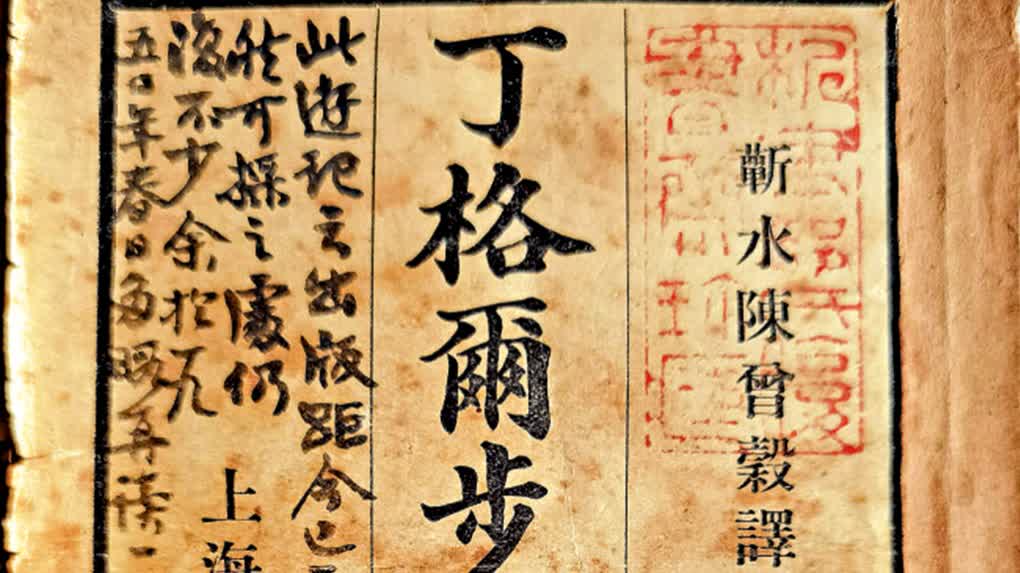 蘄水陳曾穀譯
丁格爾步
此遊記之出版距今已
然可採之處仍
復不少余於九
五〇年春日多暇再讀一
上海